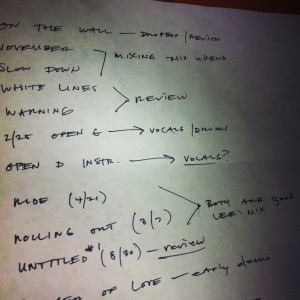 ON THE WALL — DROPBOX/REVIEW
NOVEMBER
SLOW DOWN
MIXING THIS WKEND
WHITE LINES
WARNING
REVIEW
2/25 OPEN G → VOCALS/DRUMS
OPEN D INSTR. → VOCALS?
MOE (4/21)
ROLLING OUT (3/7)
UNTITLED #1 (8/30) — review
BOTH ARE good
LEE: MIX
OF LOVE — early demo